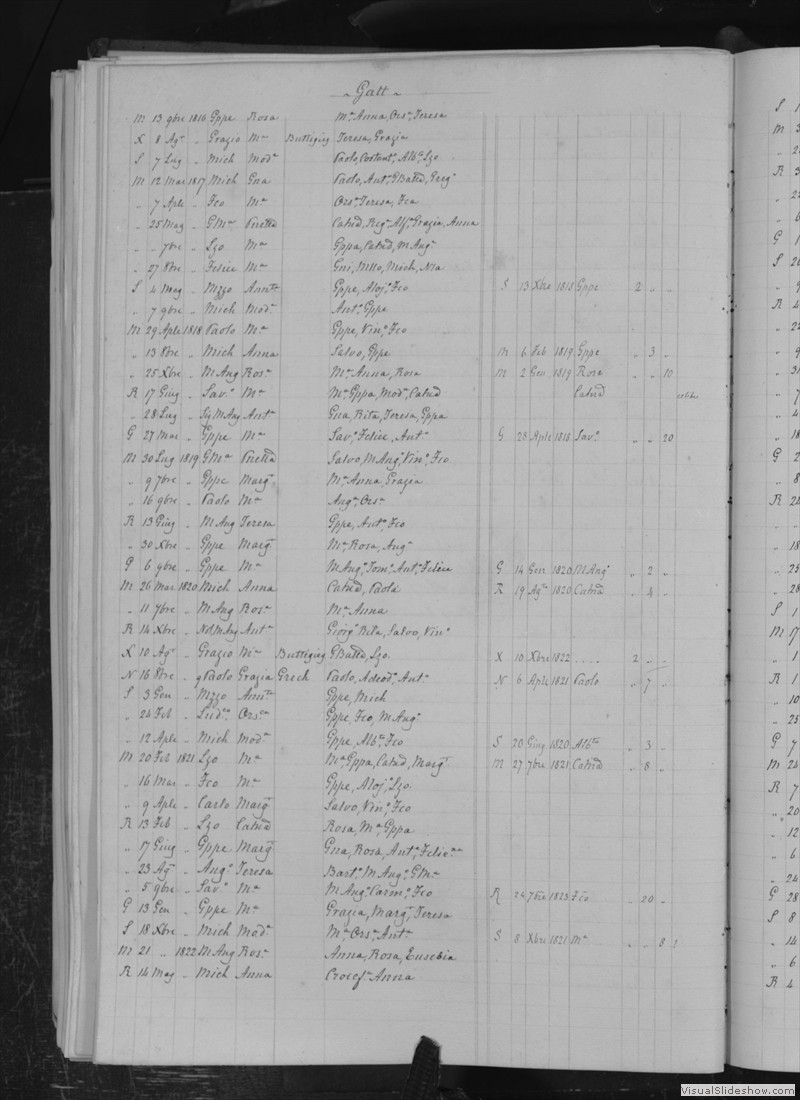 Gatt
M 13 9bre 1816 Gppe Rosa Ma Anna, Orsa, Teresa
X 8 Agto " Grazio Ma Buttigieg Teresa, Grazia
S 7 Lug " Mich Moda Paolo, Costanta, Alba, Lzo
M 12 Mar 1817 Mich Gna Paolo, Anto, GBatta, Greg
" 7 Aple " Fco Ma Orsa, Teresa, Fca
" 25 Mag " GMa Catnd, Rega, Alfo, Grazia, Anna
" " 7bre " Lzo Ma Gppa, Catnd, MAnga
" 27 8bre " Felice Ma Gni, Mich, Nra
S 4 Mag " Nzzo Annta Gppe, Aloj, Fco S 13 Xbre 1818 Gppe 2 " "
" 7 9bre " Mich Moda Anto, Gppe
M 29 Aple 1818 Paolo Ma Gppe, Vino, Fco
" 13 8bre " Mich Anna Salvo, Gppe M 6 Feb 1819 Gppe " 3 "
" 25 Xbre " MAng Rosa Ma, Anna, Rosa M 2 Gen 1819 Rosa " " 10
R 17 Giug " Savo Ma Ma, Gppa, Moda, Catnd Catnd
" 28 Lug " MAng Anta Gna, Rita, Teresa, Gppa
G 27 Mar " Gppe Ma Savo, Felice, Anta G 28 Aple 1818 Savo " " 20
M 30 Lug 1819 GMa Salvo, MAngo, Vino, Fco
" 9 7bre " Gppe Marga Ma, Anna, Grazia
" 16 9bre " Paolo Ma Anga, Orsa
R 13 Giug " MAng Teresa Gppe, Anto, Fco
" 30 Xbre " Gppe Marg Ma, Rosa, Anga
G 6 9bre " Gppe Ma MAngo, Tomo, Anto, Felice G 14 Gen 1820 MAng " 2 "
M 26 Mar 1820 Mich Anna Catnd, Paola R 19 Agto 1820 Catnd " 4 "
" 11 7bre " MAng Rosa Ma, Anna
R 14 Xbre " NotMAng Anta Giorgo, Rita, Salvo, Vino
X 10 Agto " Grazio Ma Buttigieg GBatta, Lzo X 10 Xbre 1822 .... 2 " "
N 16 8bre " Paolo Grazia Grech Paolo, Adeoda, Anta N 6 Aple 1821 Paolo " 7 "
S 3 Gen " Nzzo Annta Gppe, Mich
" 24 Feb " Orsa Gppe, Fco, MAngo
" 12 Aple " Mich Moda Gppe, Alba, Fco S 20 Giug 1820 Alba " 3 "
M 20 Feb 1821 Lzo Ma Ma, Gppa, Catnd, Marg M 27 7bre 1821 Catnd " 8 "
" 16 Mar " Fco Ma Gppe, Aloj, Lzo
" 9 Aple " Carlo Marg Salvo, Vino, Fco
R 13 Feb " Lzo Catnd Rosa, Ma, Gppa
" 17 Giug " Gppe Marg Gna, Rosa, Anto, Felice
" 23 Ago " Ango Teresa Barto, MAngo, GMa
" 5 9bre " Savo Ma MAngo, Carmo, Fco R 24 7bre 1823 Fco " 20 "
G 13 Gen " Gppe Ma Grazia, Marg, Teresa
S 18 Xbre " Mich Moda Ma, Orsa, Anta S 8 Xbre 1821 Ma " " 8
M 21 " 1822 MAng Rosa Anna, Rosa, Eusebia
R 14 Mag " Mich Anna Crocefa, Anna
VisualSlideshow.com